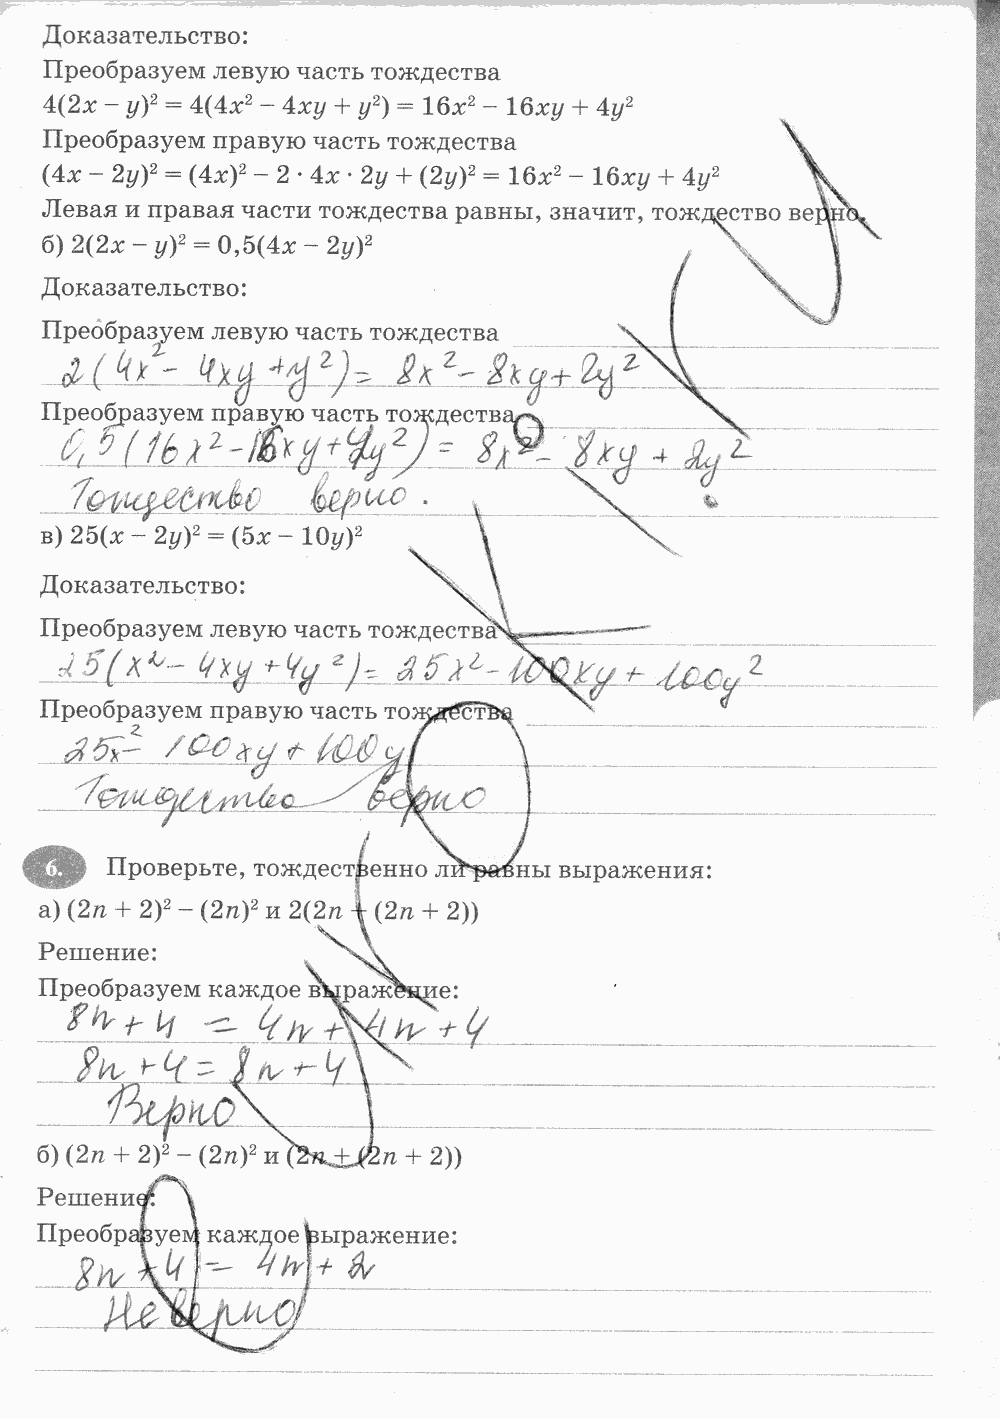 Доказательство:
Преобразуем левую часть тождества
4(2x − y)² = 4(4x² − 4xy + y²) = 16x² − 16xy + 4y²
Преобразуем правую часть тождества
(4x − 2y)² = (4x)² − 2 · 4x · 2y + (2y)² = 16x² − 16xy + 4y²
Левая и правая части тождества равны, значит, тождество верно.
б) 2(2x − y)² = 0,5(4x − 2y)²
Доказательство:
Преобразуем левую часть тождества
2(4x² − 4xy + y²) = 8x² − 8xy + 2y²
Преобразуем правую часть тождества
0,5(16x² − 16xy + 4y²) = 8x² − 8xy + 2y²
Тождество верно.
в) 25(x − 2y)² = (5x − 10y)²
Доказательство:
Преобразуем левую часть тождества
25(x² − 4xy + 4y²) = 25x² − 100xy + 100y²
Преобразуем правую часть тождества
25x² − 100xy + 100y
Тождество верно
6. Проверьте, тождественно ли равны выражения:
а) (2n + 2)² − (2n)² и 2(2n + (2n + 2))
Решение:
Преобразуем каждое выражение:
8n + 4 = 4n + 4n + 4
8n + 4 = 8n + 4
Верно
б) (2n + 2)² − (2n)² и (2n + (2n + 2))
Решение:
Преобразуем каждое выражение:
8n + 4 = 4n + 2
Не верно